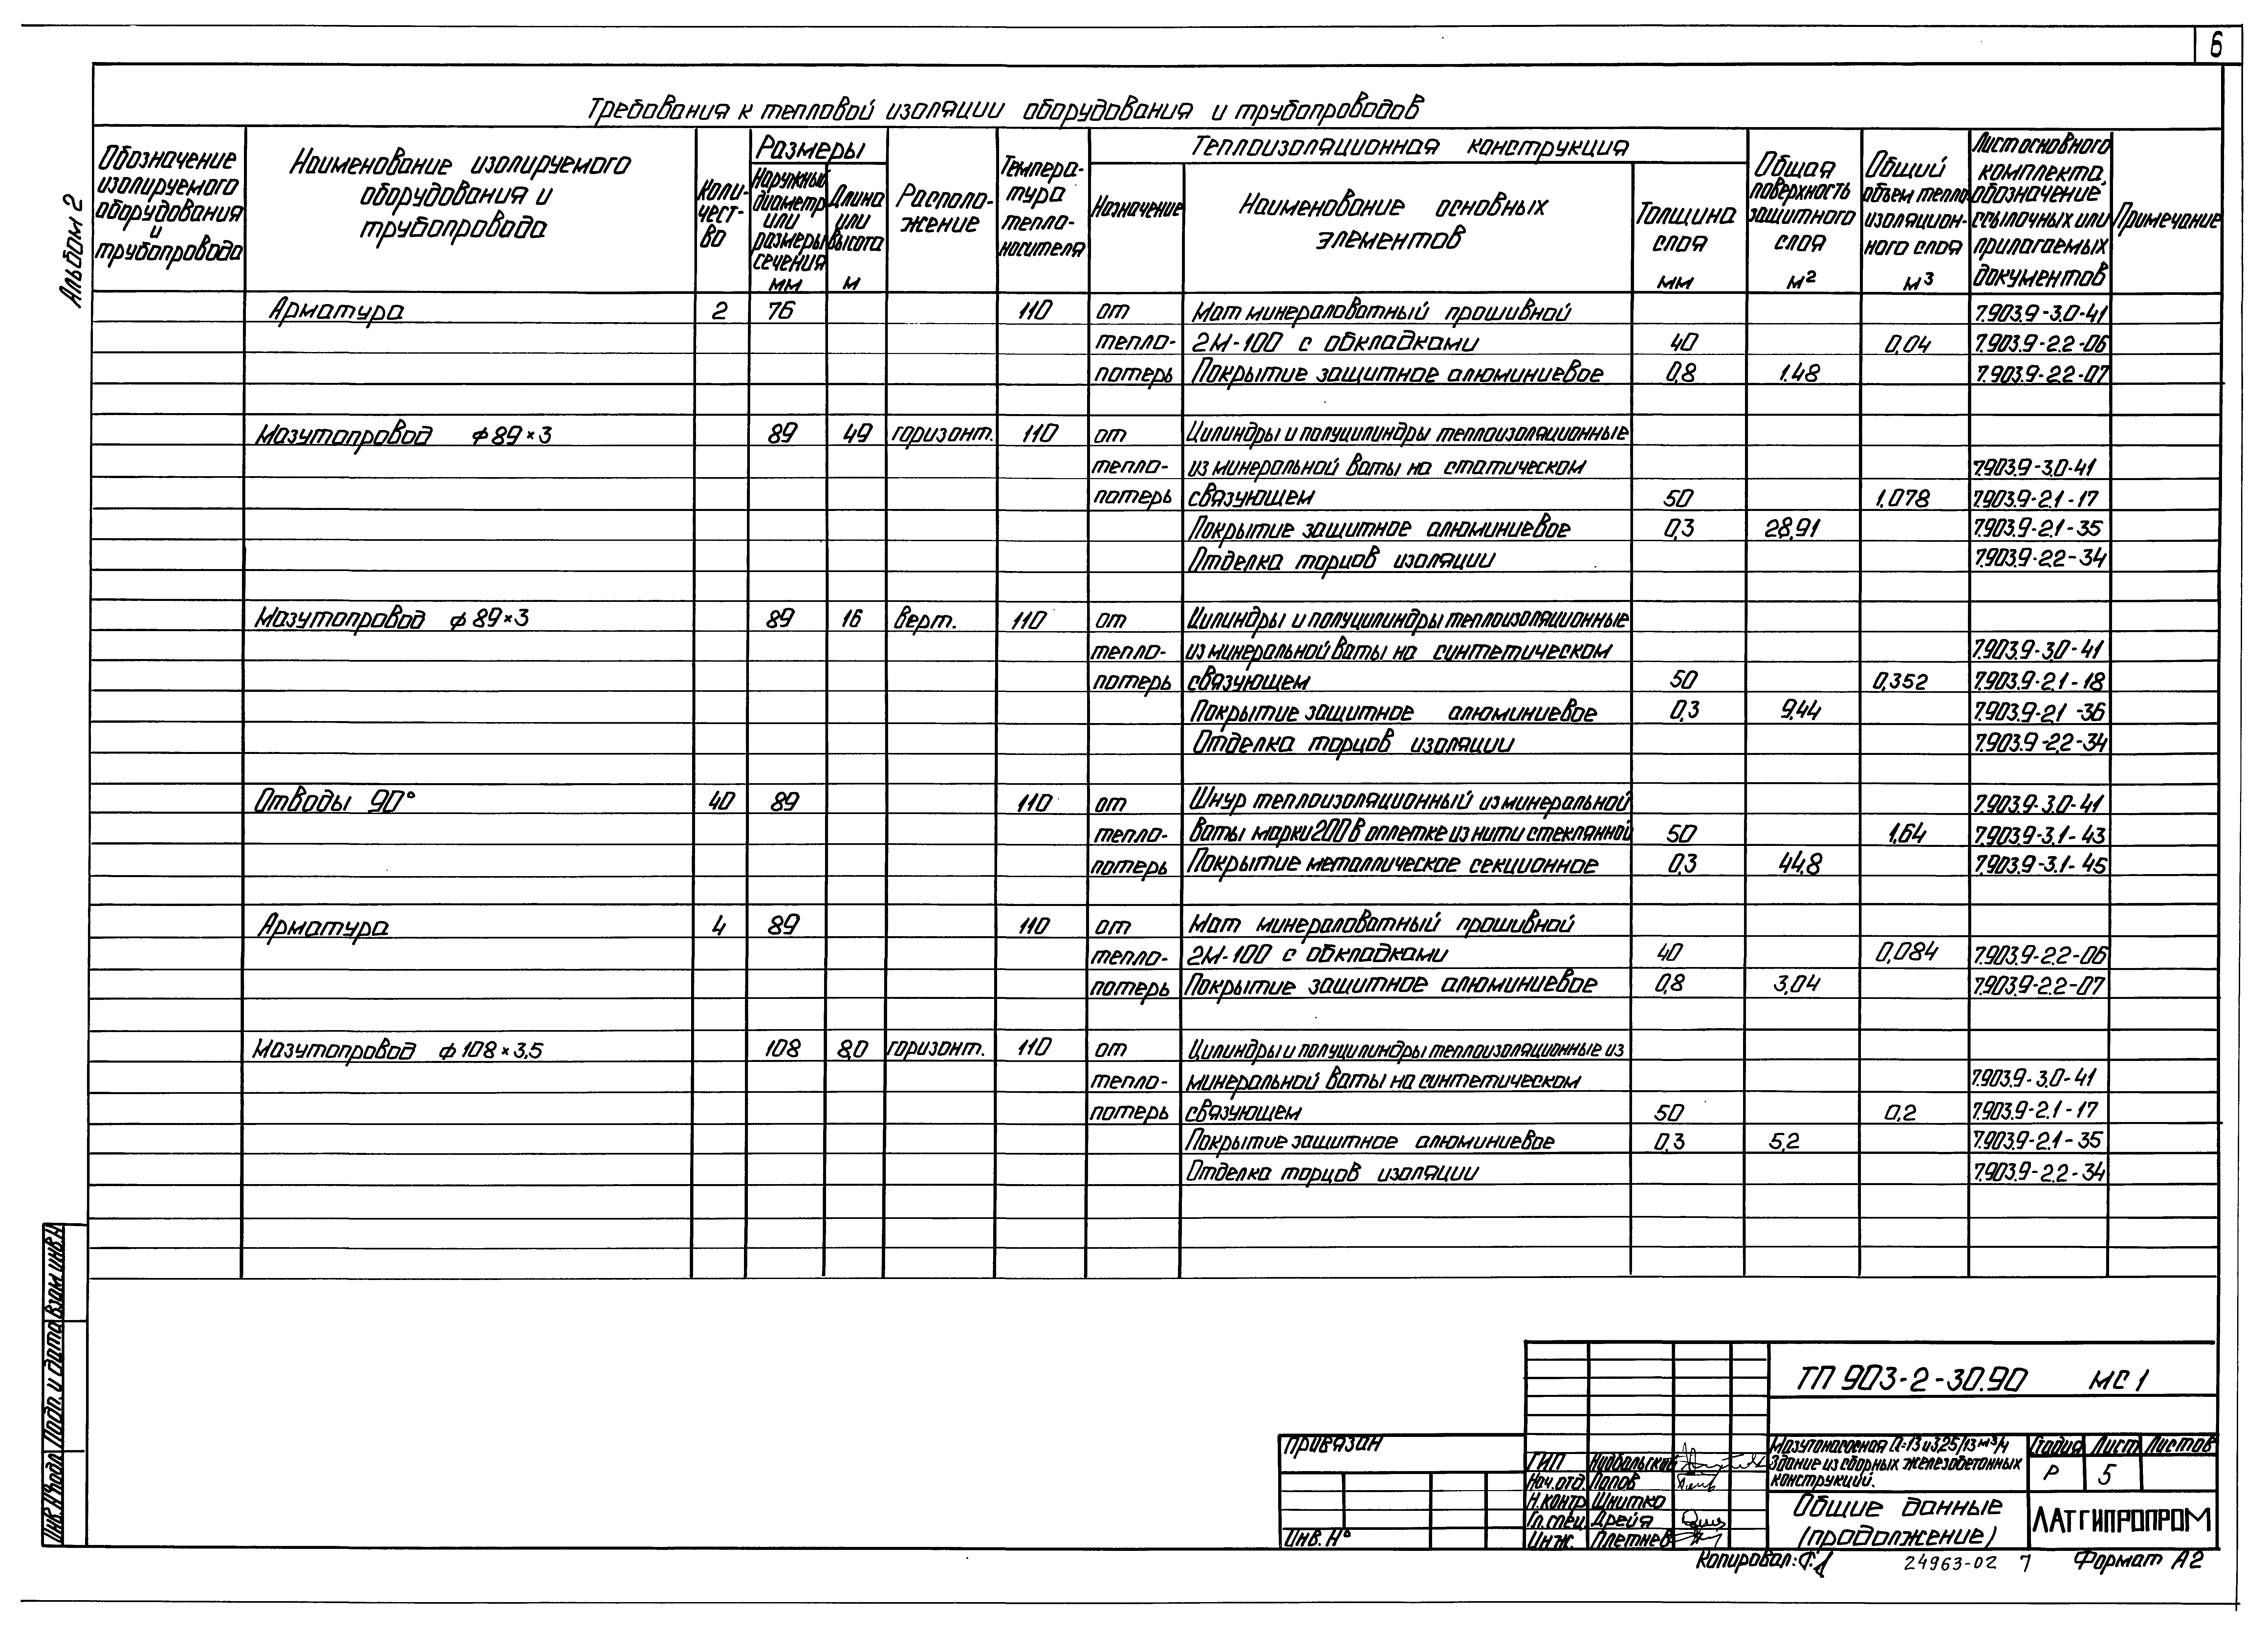 6
Альбом 2
Требования к тепловой изоляции оборудования и трубопроводов
Обозначение изолируемого оборудования и трубопровода
Наименование изолируемого оборудования и трубопровода
Коли-чест-во
Размеры
Наружный диаметр или размеры сечения мм
Длина или высота м
Располо-жение
Темпера-тура тепло-носителя
Теплоизоляционная конструкция
Назначение
Наименование основных элементов
Толщина слоя мм
Общая поверхность защитного слоя м²
Общий объем тепло изоляцион-ного слоя м³
Лист основного комплекта, обозначение ссылочных или прилагаемых документов
Примечание
Арматура 2 76 110 от Мат минераловатный прошивной 7.903.9-3.0-41
тепло- 2М-100 с обкладками 40 0,04 7.903.9-2.2-06
потерь Покрытие защитное алюминиевое 0,8 1.48 7.903.9-2.2-07
Мазутопровод ф89×3 89 49 горизонт. 110 от Цилиндры и полуцилиндры теплоизоляционные
тепло- из минеральной ваты на статическом 7.903.9-3.0-41
потерь связующем 50 1,078 7.903.9-2.1-17
Покрытие защитное алюминиевое 0,3 28,91 7.903.9-2.1-35
Отделка торцов изоляции 7.903.9-2.2-34
Мазутопровод ф89×3 89 16 верт. 110 от Цилиндры и полуцилиндры теплоизоляционные
тепло- из минеральной ваты на синтетическом 7.903.9-3.0-41
потерь связующем 50 0,352 7.903.9-2.1-18
Покрытие защитное алюминиевое 0,3 9.44 7.903.9-2.1-36
Отделка торцов изоляции 7.903.9-2.2-34
Отводы 90° 40 89 110 от Шнур теплоизоляционный из минеральной 7.903.9-3.0-41
тепло- ваты марки 200 в оплетке из нити стеклянной 50 1,64 7.903.9-3.1-43
потерь Покрытие металлическое секционное 0,3 44,8 7.903.9-3.1-45
Арматура 4 89 110 от Мат минераловатный прошивной
тепло- 2М-100 с обкладками 40 0,084 7.903.9-2.2-06
потерь Покрытие защитное алюминиевое 0,8 3,04 7.903.9-2.2-07
Мазутопровод ф108×3,5 108 8,0 горизонт. 110 от Цилиндры и полуцилиндры теплоизоляционные из
тепло- минеральной ваты на синтетическом 7.903.9-3.0-41
потерь связующем 50 0,2 7.903.9-2.1-17
Покрытие защитное алюминиевое 0,3 5,2 7.903.9-2.1-35
Отделка торцов изоляции 7.903.9-2.2-34
Взам. инв. №
Подп. и дата
Инв. № подл.
ТП 903-2-30.90 МС 1
Привязан
Инв. №
ГИП
Нач. отд. Попов
Н. контр. Шнитко
Гл. спец. Дрейя
Инж. Плетнев
Мазутонасосная Q=13 и 3,25/13 м³/ч
Здание из сборных железобетонных
конструкций.
Стадия Лист Листов
Р 5
Общие данные
(продолжение)
ЛАТГИПРОПРОМ
Копировал: 24963-02 7 Формат А2